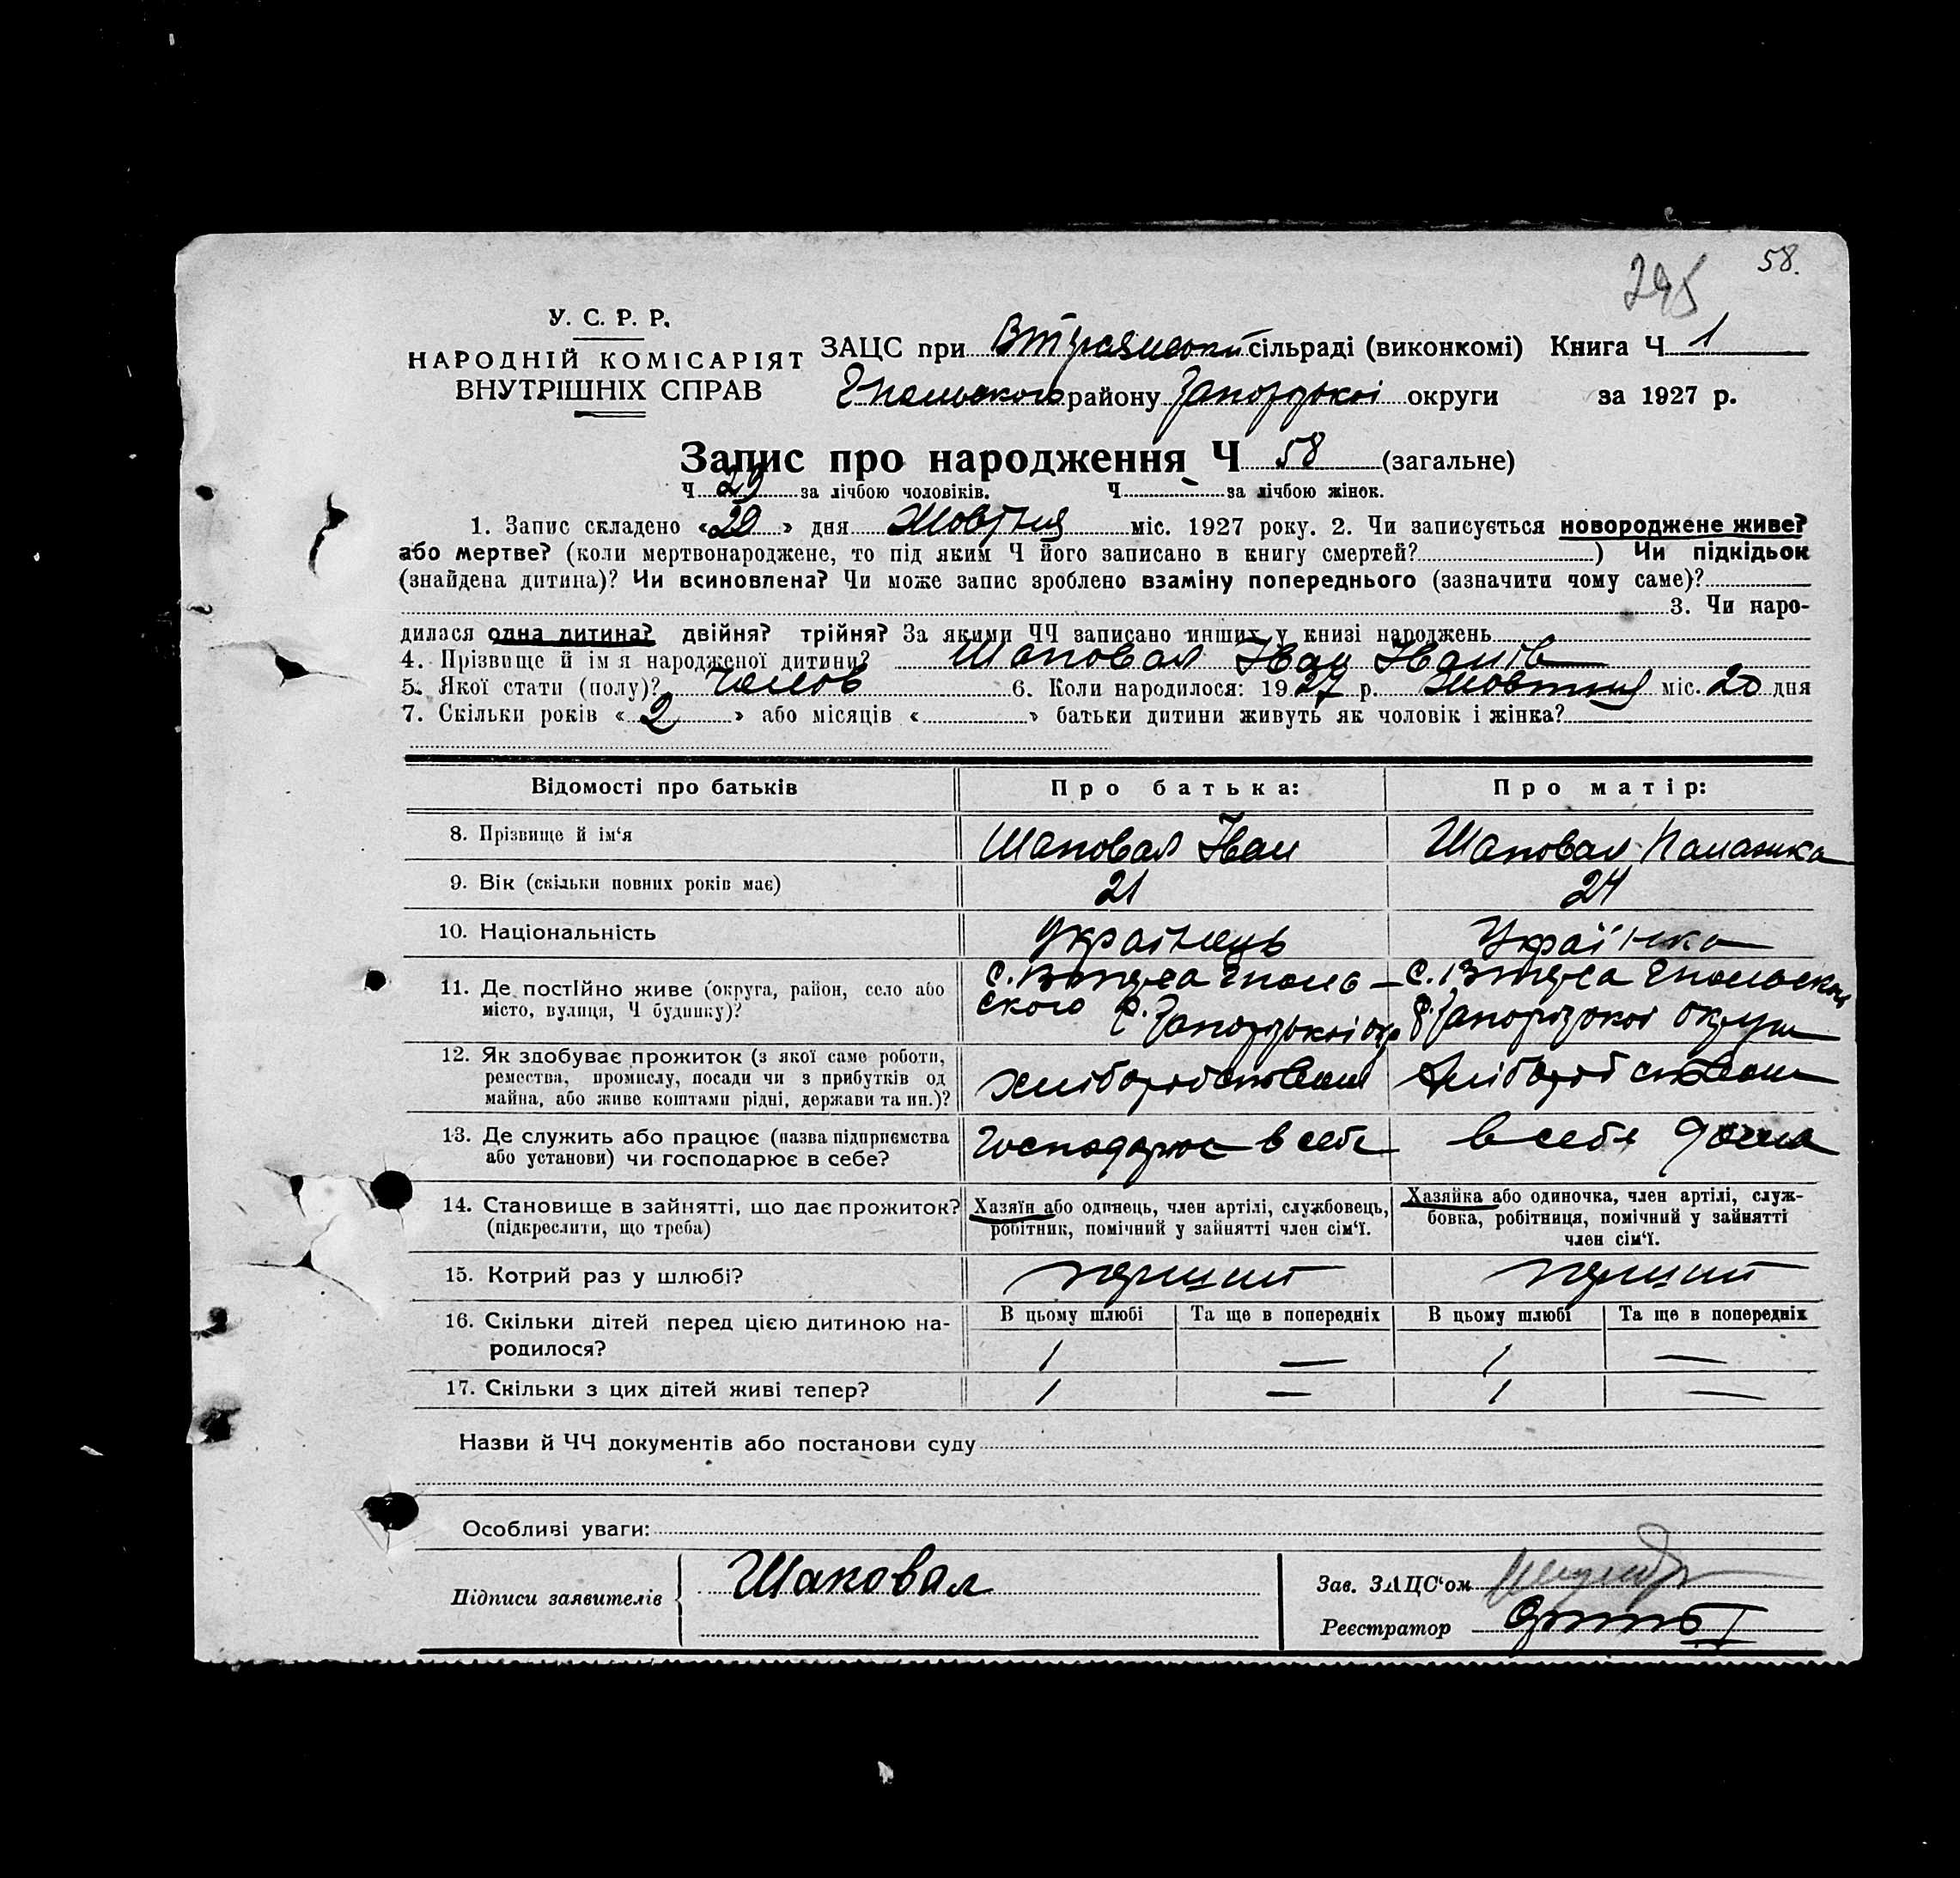 58.
295
У. С. Р. Р.
НАРОДНІЙ КОМІСАРІЯТ
ВНУТРІШНІХ СПРАВ
ЗАЦС при сільраді (виконкомі) Книга Ч 1
району Запорізької округи за 1927 р.
Запис про народження Ч 58 (загальне)
Ч 29 за лічбою чоловіків. Ч - за лічбою жінок.
1. Запис складено «29» дня Жовтня міс. 1927 року. 2. Чи записується новороджене живе?
або мертве? (коли мертвонароджене, то під яким Ч його записано в книгу смертей?) Чи підкідьок
(знайдена дитина)? Чи всиновлена? Чи може запис зроблено взаміну попереднього (зазначити чому саме)?
3. Чи наро-
дилася одна дитина? двійня? трійня? За якими ЧЧ записано инших у книзі народжень
4. Прізвище й ім'я народженої дитини? Шаповал Іван Іванів
5. Якої стати (полу)? чолов 6. Коли народилося: 1927 р. Жовтня міс. 20 дня
7. Скільки років «2» або місяців « » батьки дитини живуть як чоловік і жінка?
Відомості про батьків Про батька: Про матір:
8. Прізвище й ім'я Шаповал Іван Шаповал
9. Вік (скільки повних років має) 21 24
10. Національність Українець Українка
11. Де постійно живе (округа, район, село або
місто, вулиця, Ч будинку)? Запорізької окр Запорізької округи
12. Як здобуває прожиток (з якої саме роботи,
ремества, промислу, посади чи з прибутків од
майна, або живе коштами рідні, держави та ин.)? хліборобством хліборобством
13. Де служить або працює (назва підприємства
або установи) чи господарює в себе? Господарює в себе в себе дома
14. Становище в зайнятті, що дає прожиток?
(підкреслити, що треба)
Хазяїн або одинець, член артілі, службовець,
робітник, помічний у зайнятті член сім'ї.
Хазяйка або одиночка, член артілі, служ-
бовка, робітниця, помічний у зайнятті
член сім'ї.
15. Котрий раз у шлюбі? перший перший
16. Скільки дітей перед цією дитиною на-
родилося?
В цьому шлюбі Та ще в попередніх В цьому шлюбі Та ще в попередніх
1 — 1 —
17. Скільки з цих дітей живі тепер? 1 — 1 —
Назви й ЧЧ документів або постанови суду
Особливі уваги:
Підписи заявителів Шаповал
Зав. ЗАЦС'ом
Реєстратор